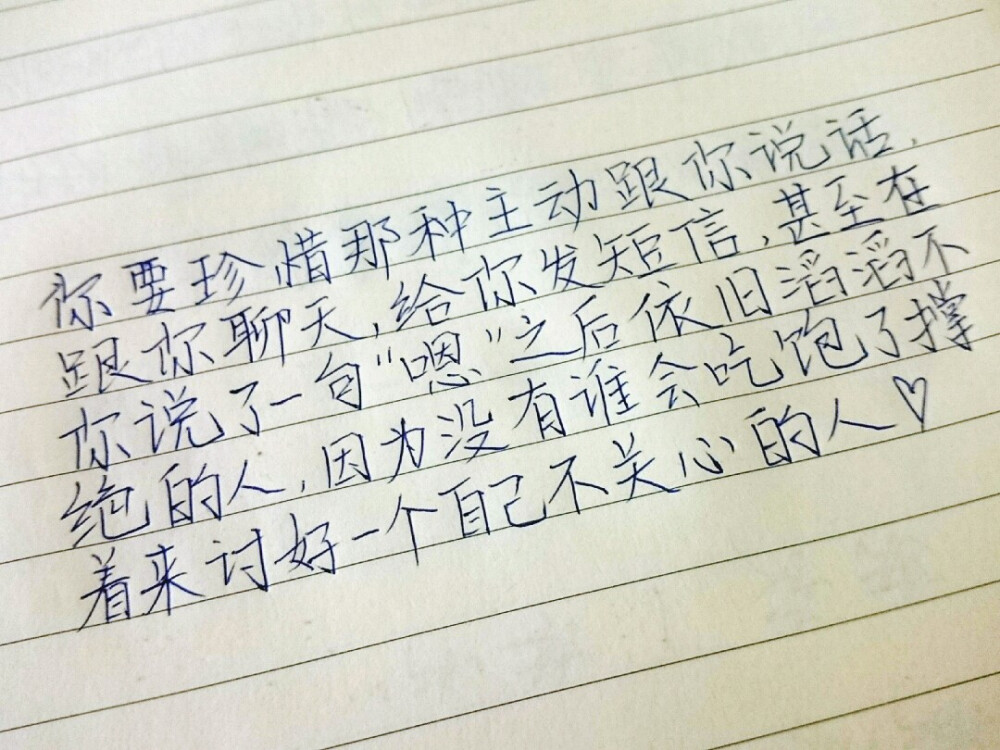 你要珍惜那种主动跟你说话，
跟你聊天，给你发短信，甚至在
你说了一句“嗯”之后依旧滔滔不
绝的人，因为没有谁会吃饱了撑
着来讨好一个自己不关心的人♡